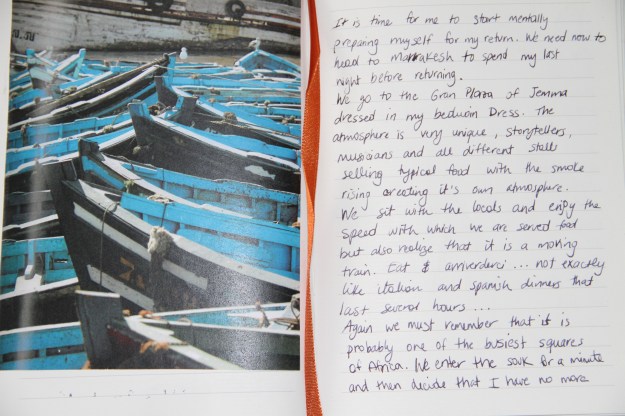 It is time for me to start mentally
preparing myself for my return. We need now to
head to Marrakesh to spend my last
night before returning.
We go to the Gran Plaza of Jemma
dressed in my beduwin Dress. The
atmosphere is very unique, storytellers,
musicians and all different stalls
selling typical food with the smoke
rising creating it's own atmosphere.
We sit with the locals and enjoy the
speed with which we are served food
but also realize that it is a moving
train. Eat & arriverderci ... not exactly
like italian and spanish dinners that
last several hours ...
Again we must remember that it is
probably one of the busiest squares
of Africa. We enter the souk for a minute
and then decide that I have no more